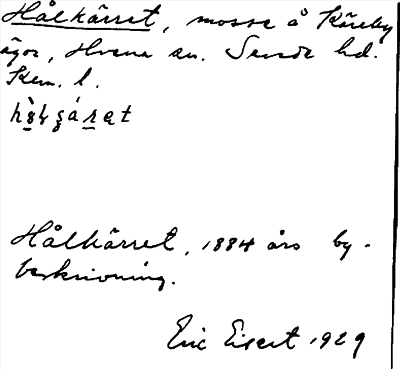 Hålkärret, mosse å Käreby
ägor, Hvena sn. Sevede hd.
Kem. l.
Hålkärret, 1884 års by-
beskrivning.
Eric Eisert 1929